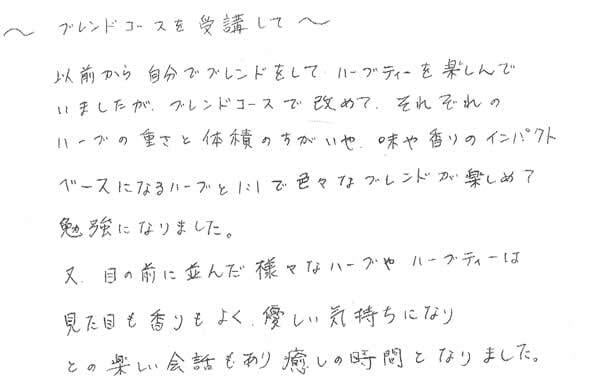 ～ ブレンドコースを受講して ～
以前から自分でブレンドをして、ハーブティーを楽しんで
いましたが、ブレンドコースで改めて、それぞれの
ハーブの重さと体積のちがいや、味や香りのインパクト
ベースになるハーブと1:1で色々なブレンドが楽しめて
勉強になりました。
又、目の前に並んだ様々なハーブやハーブティーは
見た目も香りもよく、優しい気持ちになり
との楽しい会話もあり癒しの時間となりました。